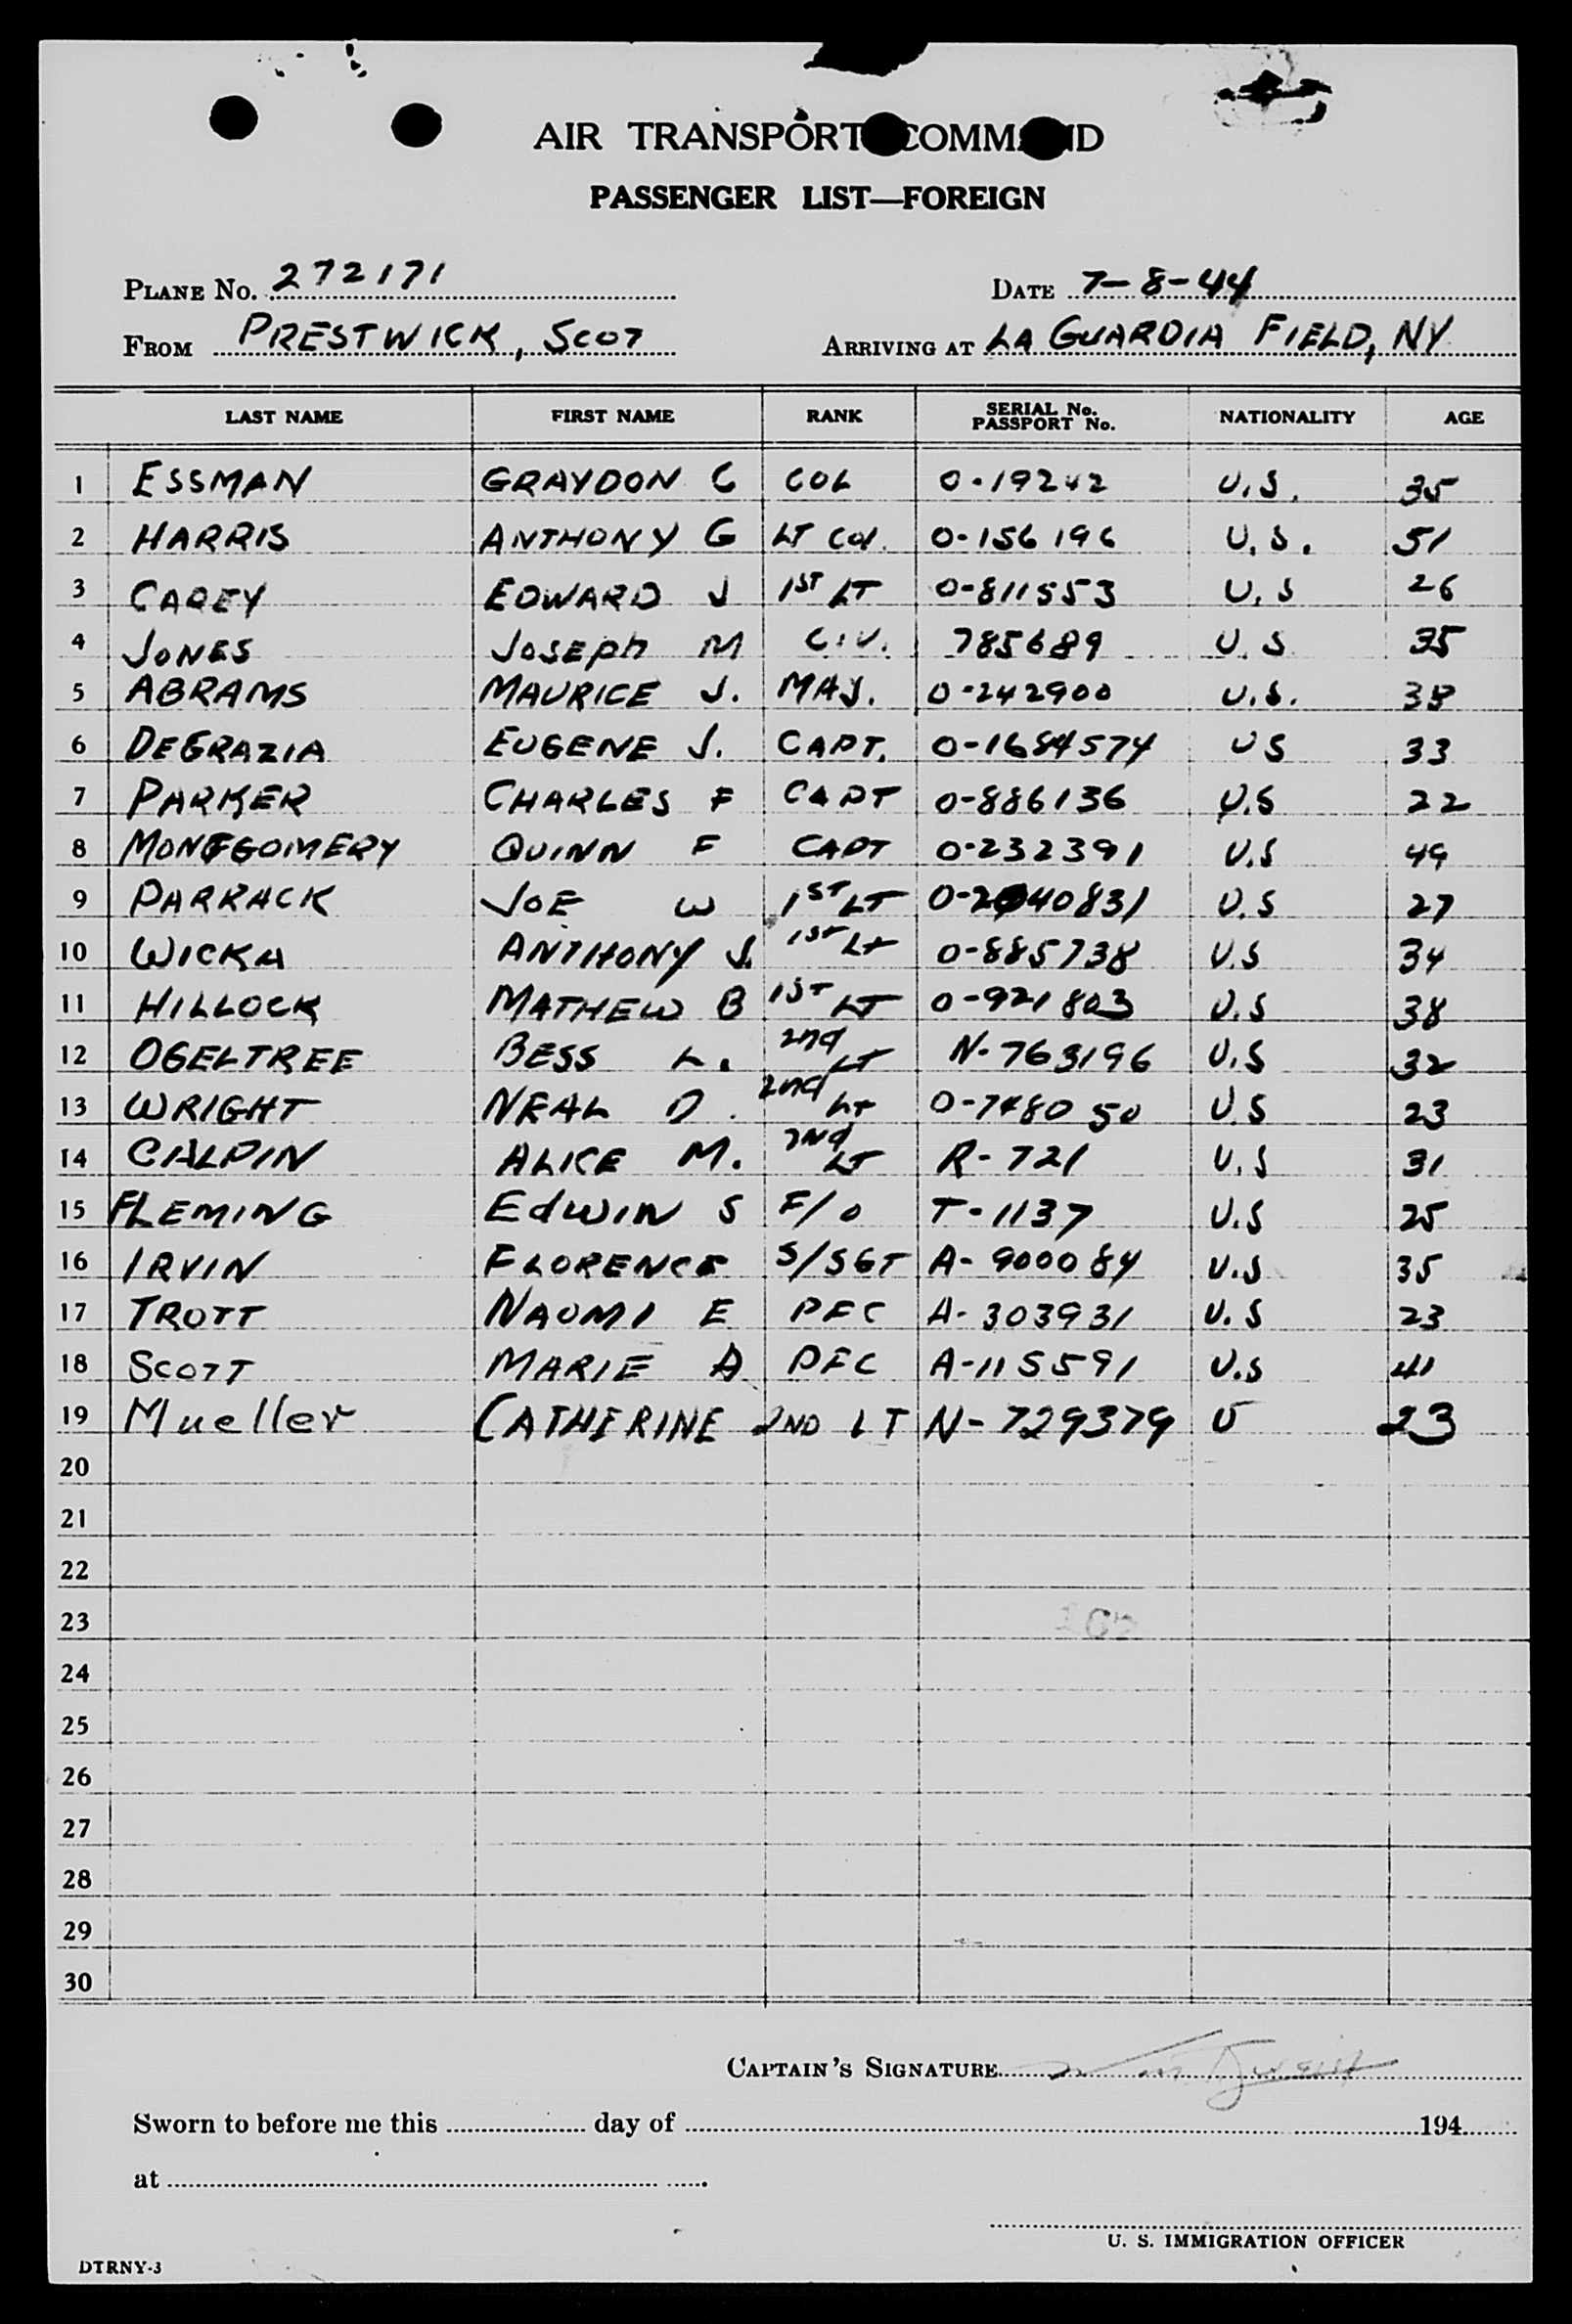 AIR TRANSPORT COMMAND
PASSENGER LIST—FOREIGN
PLANE No. 272171 DATE 7-8-44
FROM PRESTWICK, SCOT ARRIVING AT LA GUARDIA FIELD, NY
LAST NAME FIRST NAME RANK SERIAL No. PASSPORT No. NATIONALITY AGE
1 ESSMAN GRAYDON C COL 0-19242 U.S. 35
2 HARRIS ANTHONY G LT COL. 0-156196 U.S. 51
3 CAREY EDWARD J 1ST LT 0-811553 U.S 26
4 JONES JOSEPH M CIV. 785689 U.S 35
5 ABRAMS MAURICE J. MAJ. 0-242900 U.S. 38
6 DEGRAZIA EUGENE J. CAPT. 0-1684574 US 33
7 PARKER CHARLES F CAPT 0-886136 U.S 22
8 MONTGOMERY QUINN F CAPT 0-232391 U.S 49
9 PARRACK JOE W 1ST LT 0-2040831 U.S 27
10 WICKA ANTHONY J. 1ST LT 0-885738 U.S 34
11 HILLOCK MATHEW B 1ST LT 0-921803 U.S 38
12 OGELTREE BESS L. 2nd LT N-763196 U.S 32
13 WRIGHT NEAL D. 2nd LT 0-748050 U.S 23
14 CALPIN ALICE M. 2Nd LT R-721 U.S 31
15 FLEMING EdWIN S F/O T-1137 U.S 25
16 IRVIN FLORENCE S/SGT A-900084 U.S 35
17 TROTT NAOMI E PFC A-303931 U.S 23
18 SCOTT MARIE A PFC A-115591 U.S 41
19 Mueller CATHERINE 2ND LT N-729379 U 23
20
21
22
23
24
25
26
27
28
29
30
CAPTAIN'S SIGNATURE
Sworn to before me this day of 194
at
U. S. IMMIGRATION OFFICER
DTRNY-3